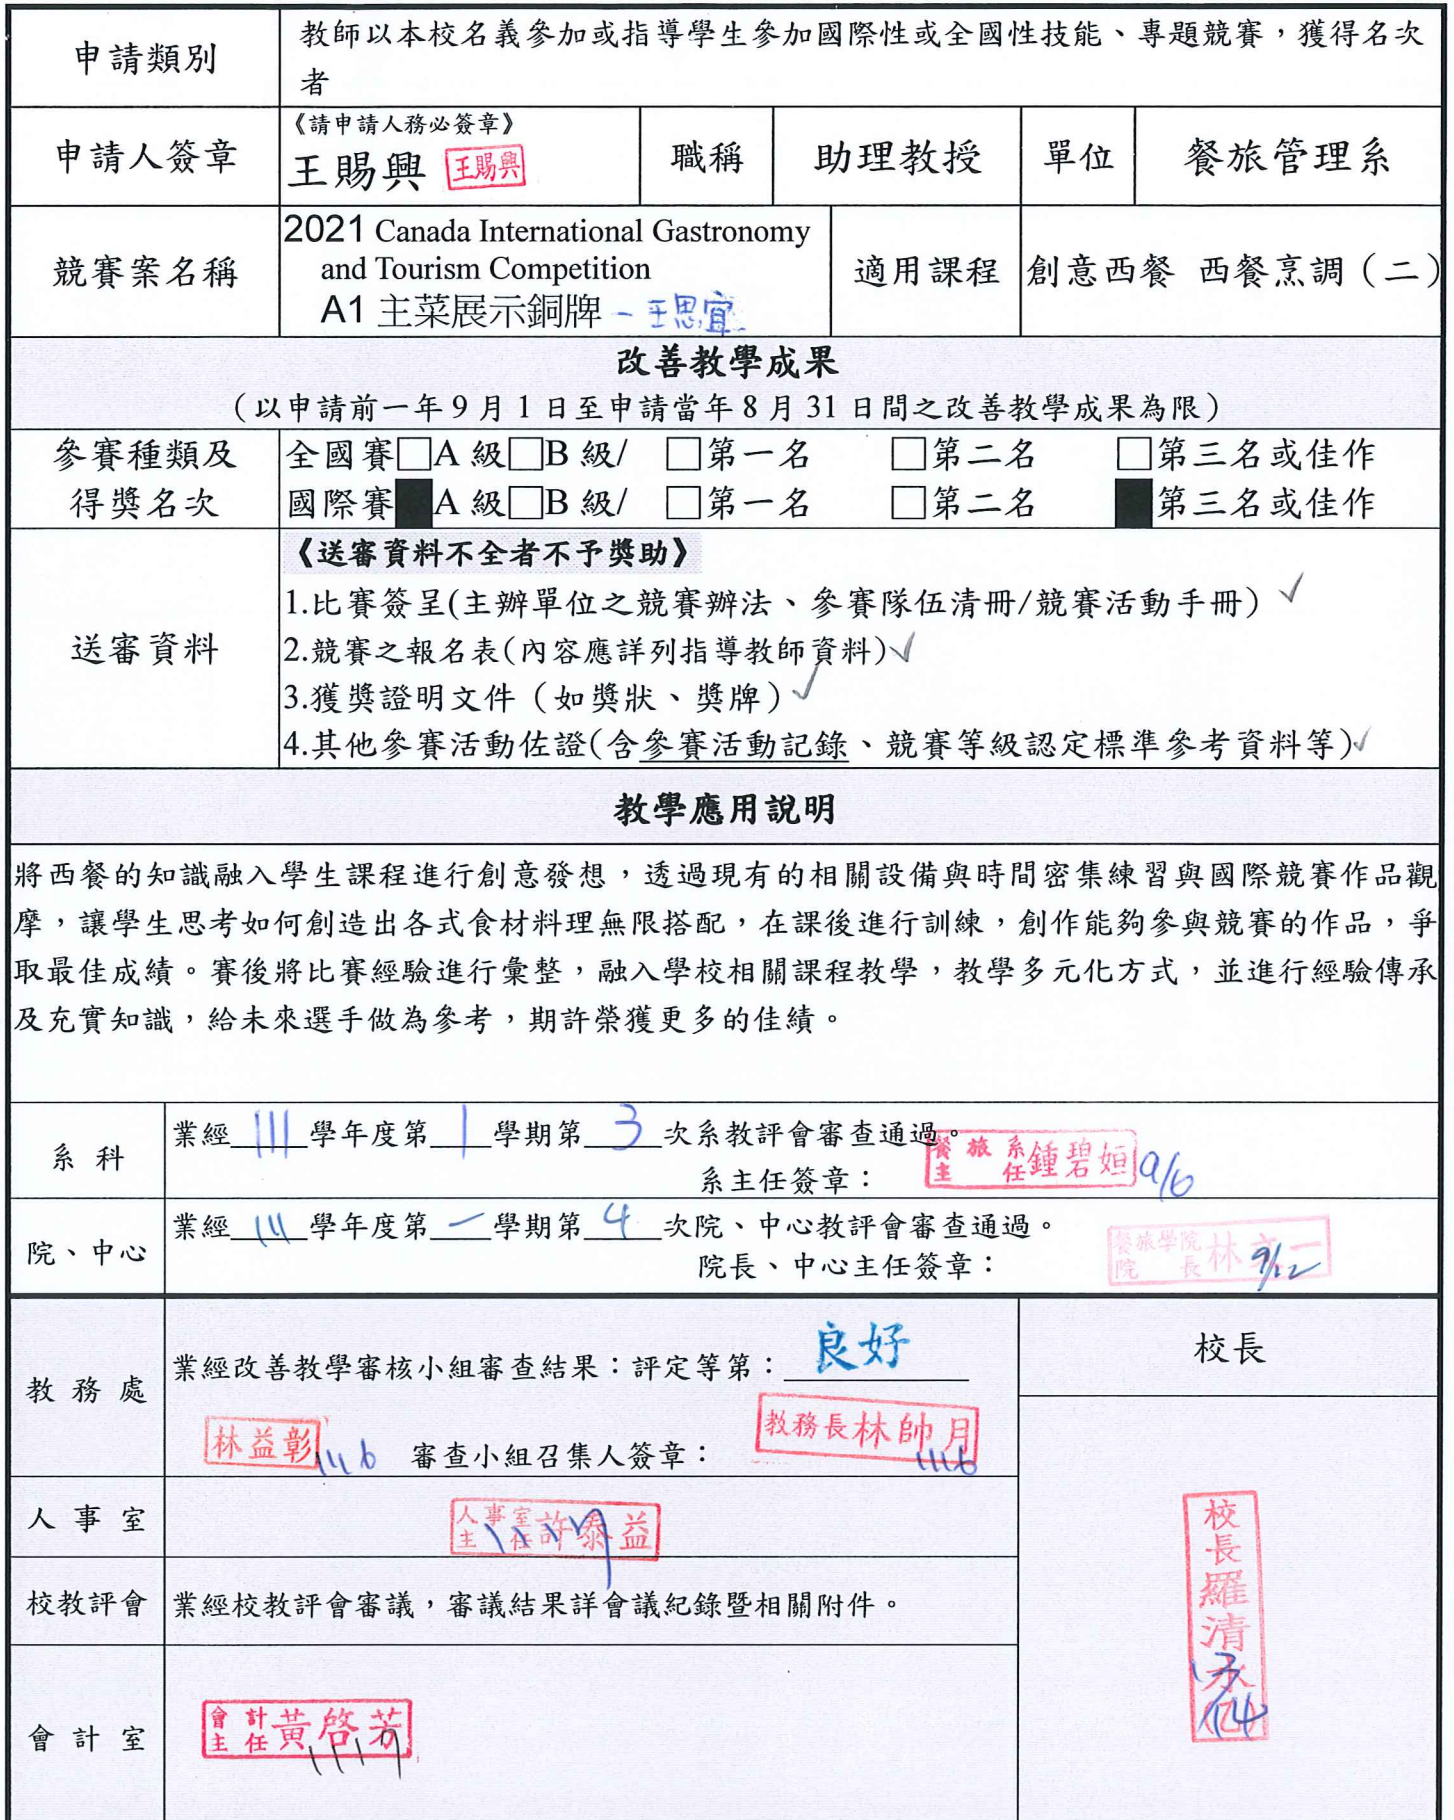 申請類別
教師以本校名義參加或指導學生參加國際性或全國性技能、專題競賽，獲得名次
者
申請人簽章
《請申請人務必簽章》
王賜興 王賜興
職稱
助理教授
單位
餐旅管理系
競賽案名稱
2021 Canada International Gastronomy
and Tourism Competition
A1 主菜展示銅牌 - 王思宜
適用課程
創意西餐 西餐烹調（二）
改善教學成果
（以申請前一年 9 月 1 日至申請當年 8 月 31 日間之改善教學成果為限）
參賽種類及
得獎名次
全國賽□A 級□B 級/ □第一名 □第二名 □第三名或佳作
國際賽■A 級□B 級/ □第一名 □第二名 ■第三名或佳作
送審資料
《送審資料不全者不予獎助》
1.比賽簽呈(主辦單位之競賽辦法、參賽隊伍清冊/競賽活動手冊) ✓
2.競賽之報名表(內容應詳列指導教師資料)✓
3.獲獎證明文件（如獎狀、獎牌）✓
4.其他參賽活動佐證(含參賽活動記錄、競賽等級認定標準參考資料等)✓
教學應用說明
將西餐的知識融入學生課程進行創意發想，透過現有的相關設備與時間密集練習與國際競賽作品觀
摩，讓學生思考如何創造出各式食材料理無限搭配，在課後進行訓練，創作能夠參與競賽的作品，爭
取最佳成績。賽後將比賽經驗進行彙整，融入學校相關課程教學，教學多元化方式，並進行經驗傳承
及充實知識，給未來選手做為參考，期許榮獲更多的佳績。
系科
業經 111 學年度第 1 學期第 3 次系教評會審查通過。
系主任簽章：
餐旅系主任鍾碧姮 9/6
院、中心
業經 111 學年度第 一 學期第 4 次院、中心教評會審查通過。
院長、中心主任簽章：
餐旅學院院長林文一 9/12
教務處
業經改善教學審核小組審查結果：評定等第： 良好
林益彰 1116 審查小組召集人簽章： 教務長林帥月 1116
校長
人事室
人事室主任許泰益 1117
校教評會
業經校教評會審議，審議結果詳會議紀錄暨相關附件。
校長羅清永
會計室
會計主任黃啓芳 1117